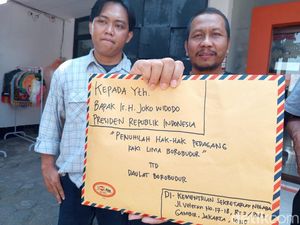 KEPADA Yth.
BAPAK Ir. H. JOKO WIDODO
PRESIDEN REPUBLIK INDONESIA
"PENUHILAH HAK-HAK PEDAGANG
KAKI LIMA BOROBUDUR"
TTD
DAULAT BOROBUDUR
DI- KEMENTRIAN SEKRETARIAT NEGARA
JL. Veteran No. 17-18,
GAMBIR, JAKARTA